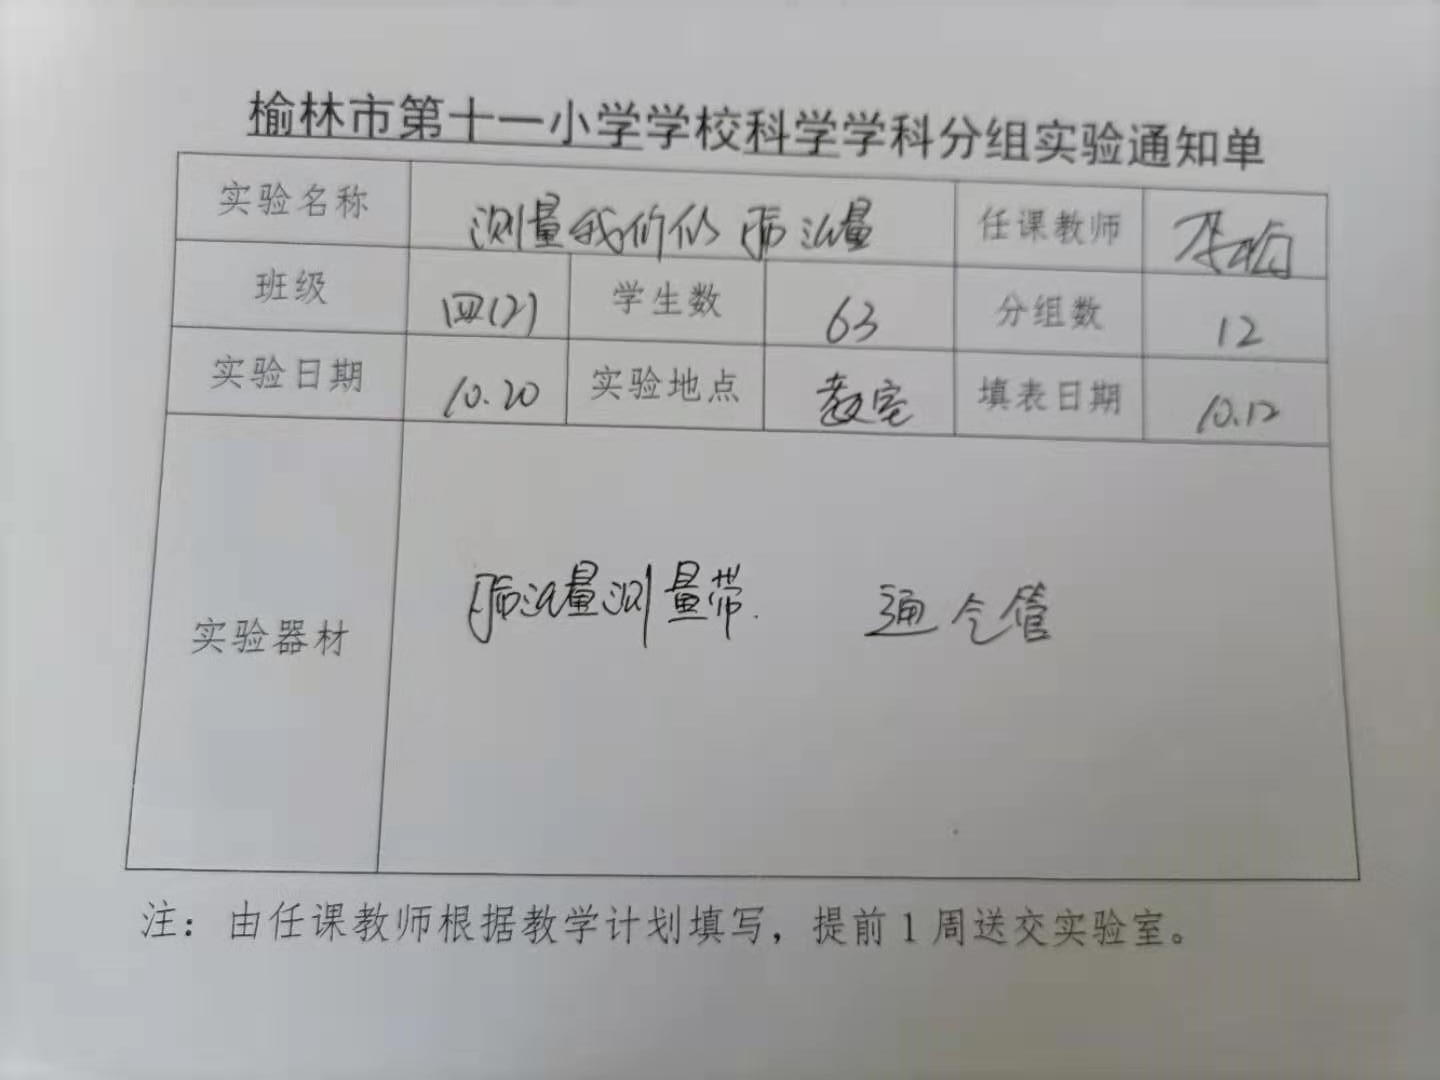 榆林市第十一小学学校科学学科分组实验通知单
实验名称 测量我们的肺活量 任课教师
班级 四(2) 学生数 63 分组数 12
实验日期 10.20 实验地点 教室 填表日期 10.12
实验器材 肺活量测量带. 通气管
注：由任课教师根据教学计划填写，提前1周送交实验室。